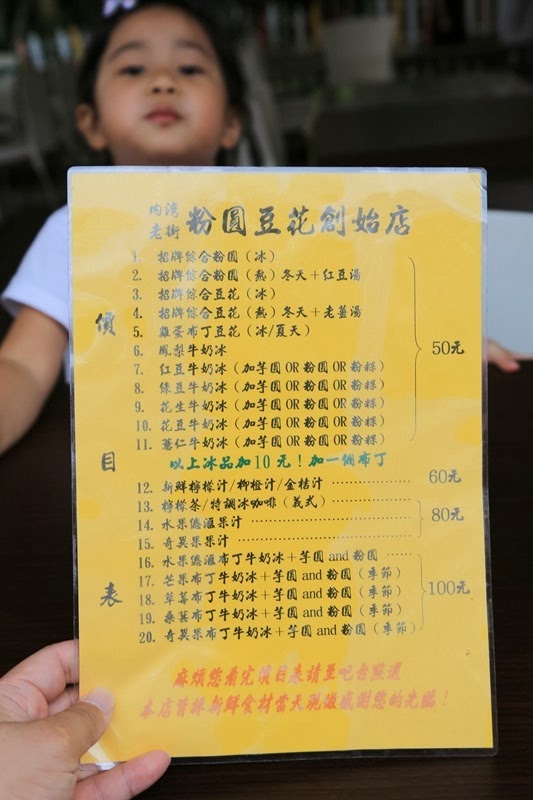 內灣老街 粉圓豆花創始店
價目表
1. 招牌綜合粉圓（冰）
2. 招牌綜合粉圓（熱）冬天＋紅豆湯
3. 招牌綜合豆花（冰）
4. 招牌綜合豆花（熱）冬天＋老薑湯
5. 雞蛋布丁豆花（冰/夏天）
6. 鳳梨牛奶冰
7. 紅豆牛奶冰（加芋圓OR粉圓OR粉粿）
8. 綠豆牛奶冰（加芋圓OR粉圓OR粉粿）
9. 花生牛奶冰（加芋圓OR粉圓OR粉粿）
10. 花豆牛奶冰（加芋圓OR粉圓OR粉粿）
11. 薏仁牛奶冰（加芋圓OR粉圓OR粉粿）
50元
以上冰品加10元！加一個布丁
12. 新鮮檸檬汁/柳橙汁/金桔汁 60元
13. 檸檬茶/特調冰咖啡（義式）
14. 水果總滙果汁
15. 奇異果果汁
80元
16. 水果總滙布丁牛奶冰＋芋圓and粉圓
17. 芒果布丁牛奶冰＋芋圓and粉圓（季節）
18. 草莓布丁牛奶冰＋芋圓and粉圓（季節）
19. 桑葚布丁牛奶冰＋芋圓and粉圓（季節）
20. 奇異果布丁牛奶冰＋芋圓and粉圓（季節）
100元
麻煩您看完價目表請至吧台點選
本店皆採新鮮食材當天現做感謝您的光臨！